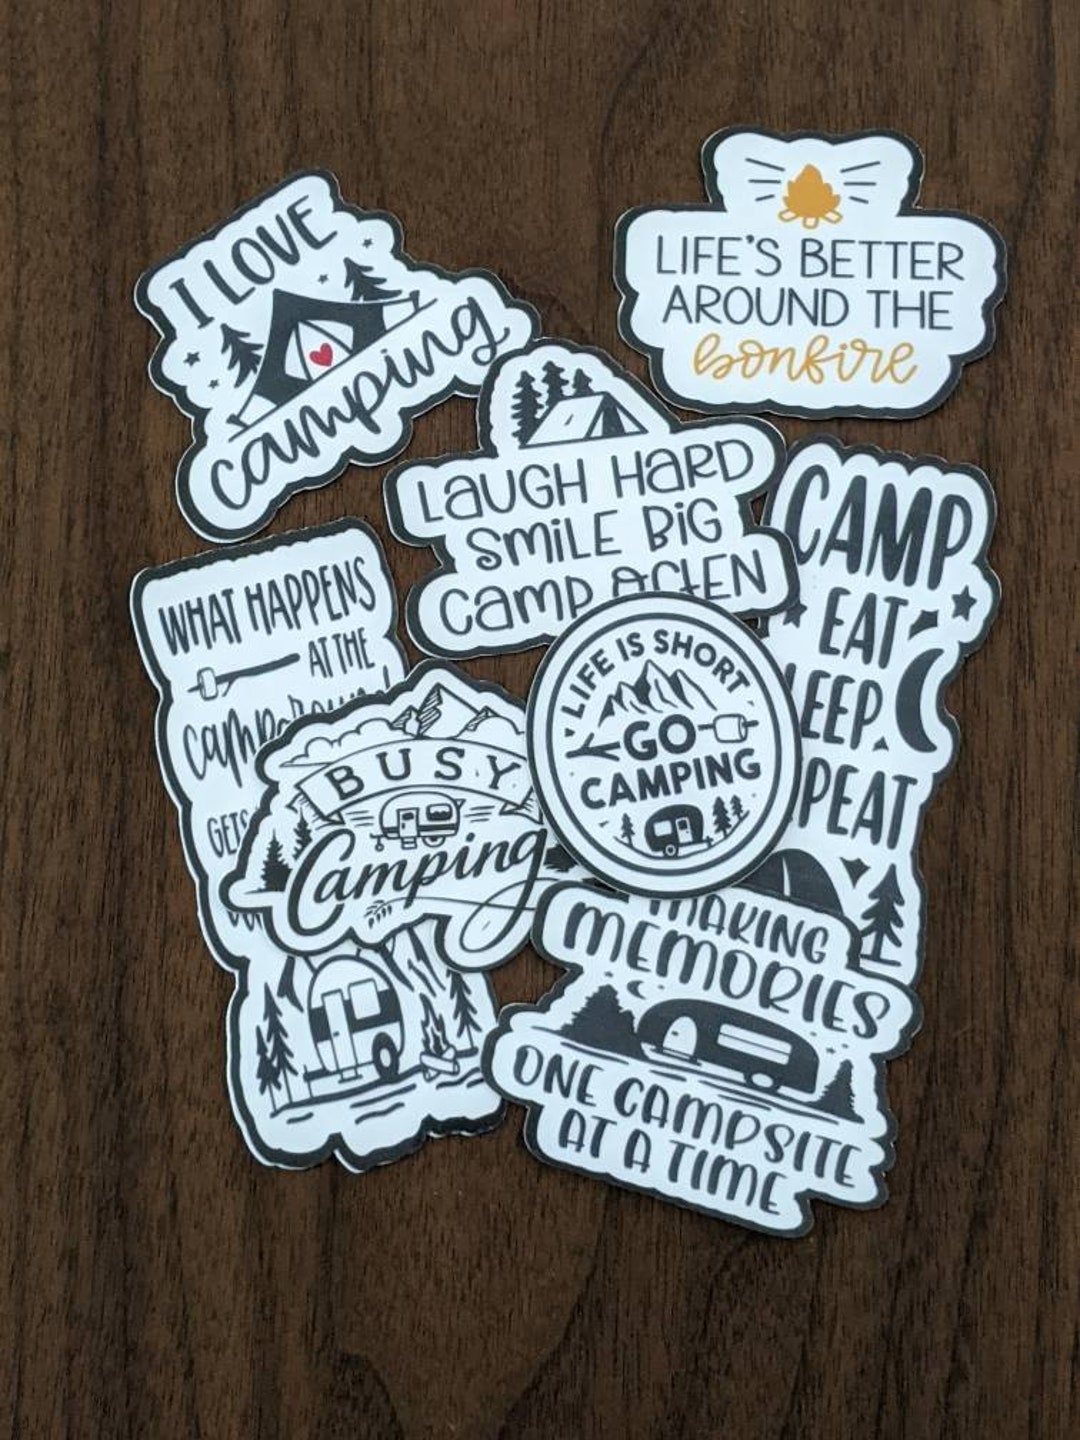 I LOVE
camping
LIFE'S BETTER
AROUND THE
bonfire
LAUGH HARD
SMILE BIG
CAMP OFTEN
CAMP
EAT
EEP
PEAT
WHAT HAPPENS
AT THE
GETS
BUSY
Camping
LIFE IS SHORT
GO
CAMPING
MAKING
MEMORIES
ONE CAMPSITE
AT A TIME